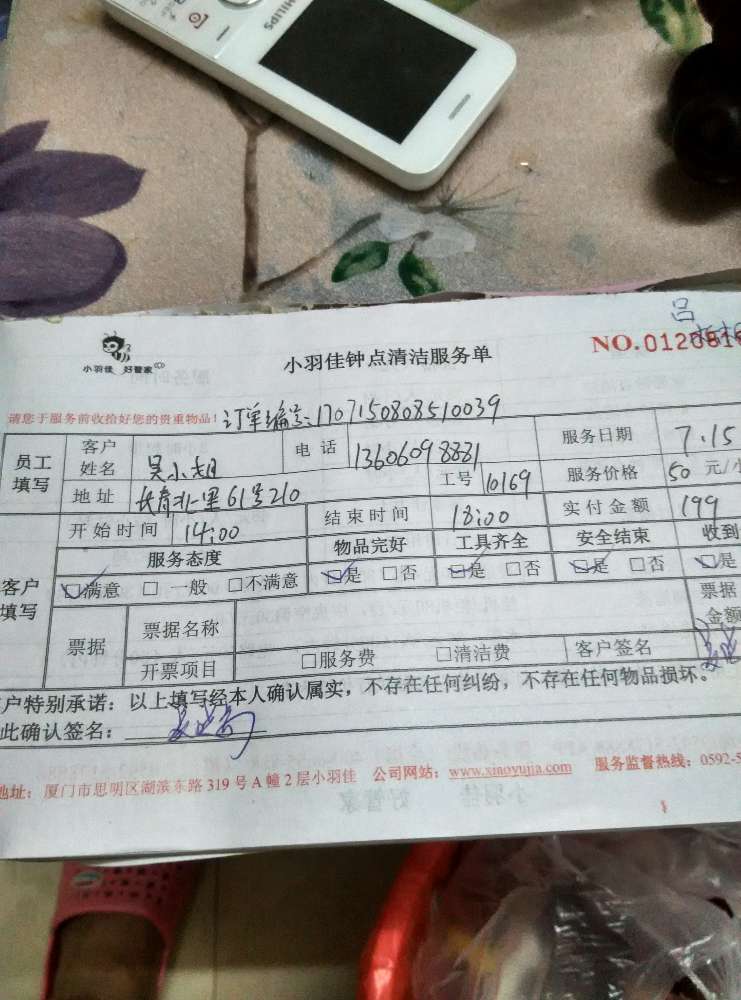 PHILIPS
吕
小羽佳 好管家
小羽佳钟点清洁服务单
NO.0120816
请您于服务前收拾好您的贵重物品！订单编号:1707150808510039
员工填写 客户姓名 吴小姐 电话 13606098881 服务日期 7.15
地址 长青北里61号210 工号 10169 服务价格 50 元/小
开始时间 14:00 结束时间 18:00 实付金额 199
客户填写 服务态度 物品完好 工具齐全 安全结束 收到
☑满意 □一般 □不满意 ☑是 □否 ☑是 □否 ☑是 □否 ☑是
票据 票据名称 票据金额
开票项目 □服务费 □清洁费 客户签名
户特别承诺：以上填写经本人确认属实，不存在任何纠纷，不存在任何物品损坏。
此确认签名：
地址：厦门市思明区湖滨东路319号A幢2层小羽佳 公司网站：www.xiaoyujia.com 服务监督热线：0592-5